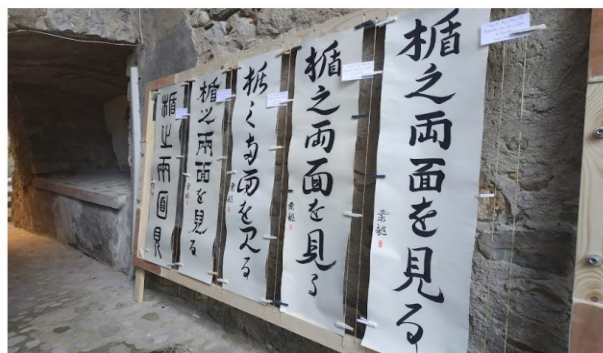 楯之両面を見る
楯之両面を見る
楯之両面を見る
楯之兩面を見る
楯之兩面見